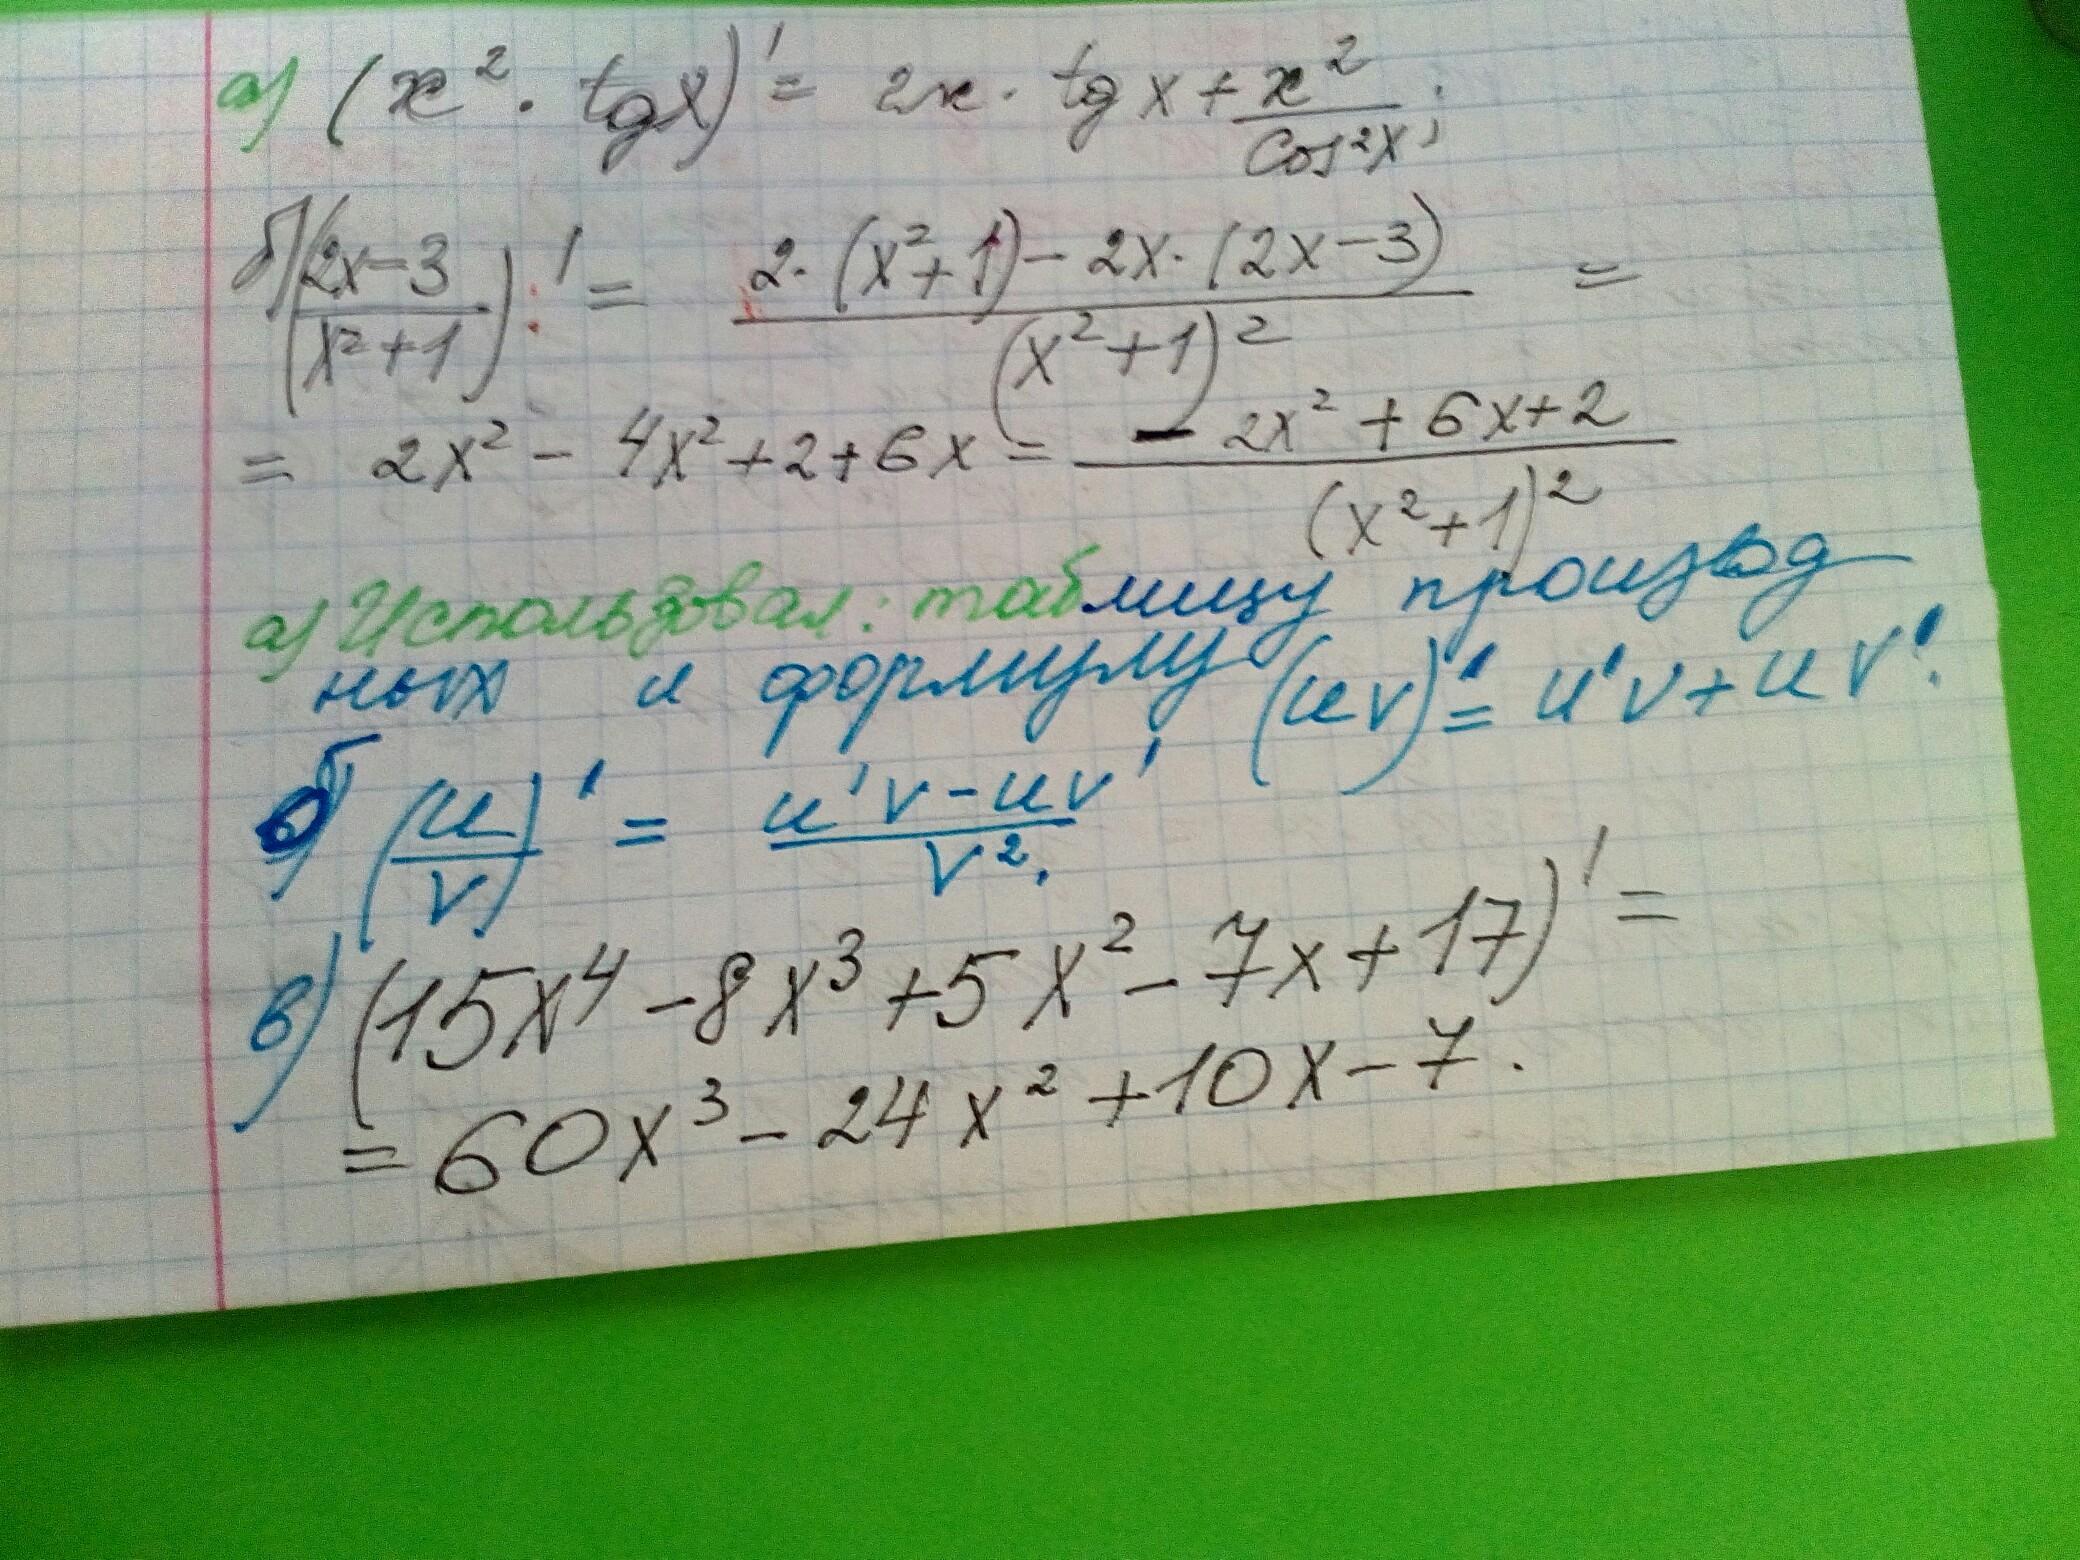 а) (x² · tgx)' = 2x · tg x + x²/cos²x;
б) ((2x-3)/(x²+1))' = (2·(x²+1) - 2x·(2x-3))/(x²+1)² =
= 2x² - 4x² + 2 + 6x = (-2x² + 6x + 2)/(x²+1)²
а) Использовал: таблицу производ
ных и формулу (uv)' = u'v + uv'.
б) (u/v)' = (u'v - uv')/v².
в) (15x⁴ - 8x³ + 5x² - 7x + 17)' =
= 60x³ - 24x² + 10x - 7.